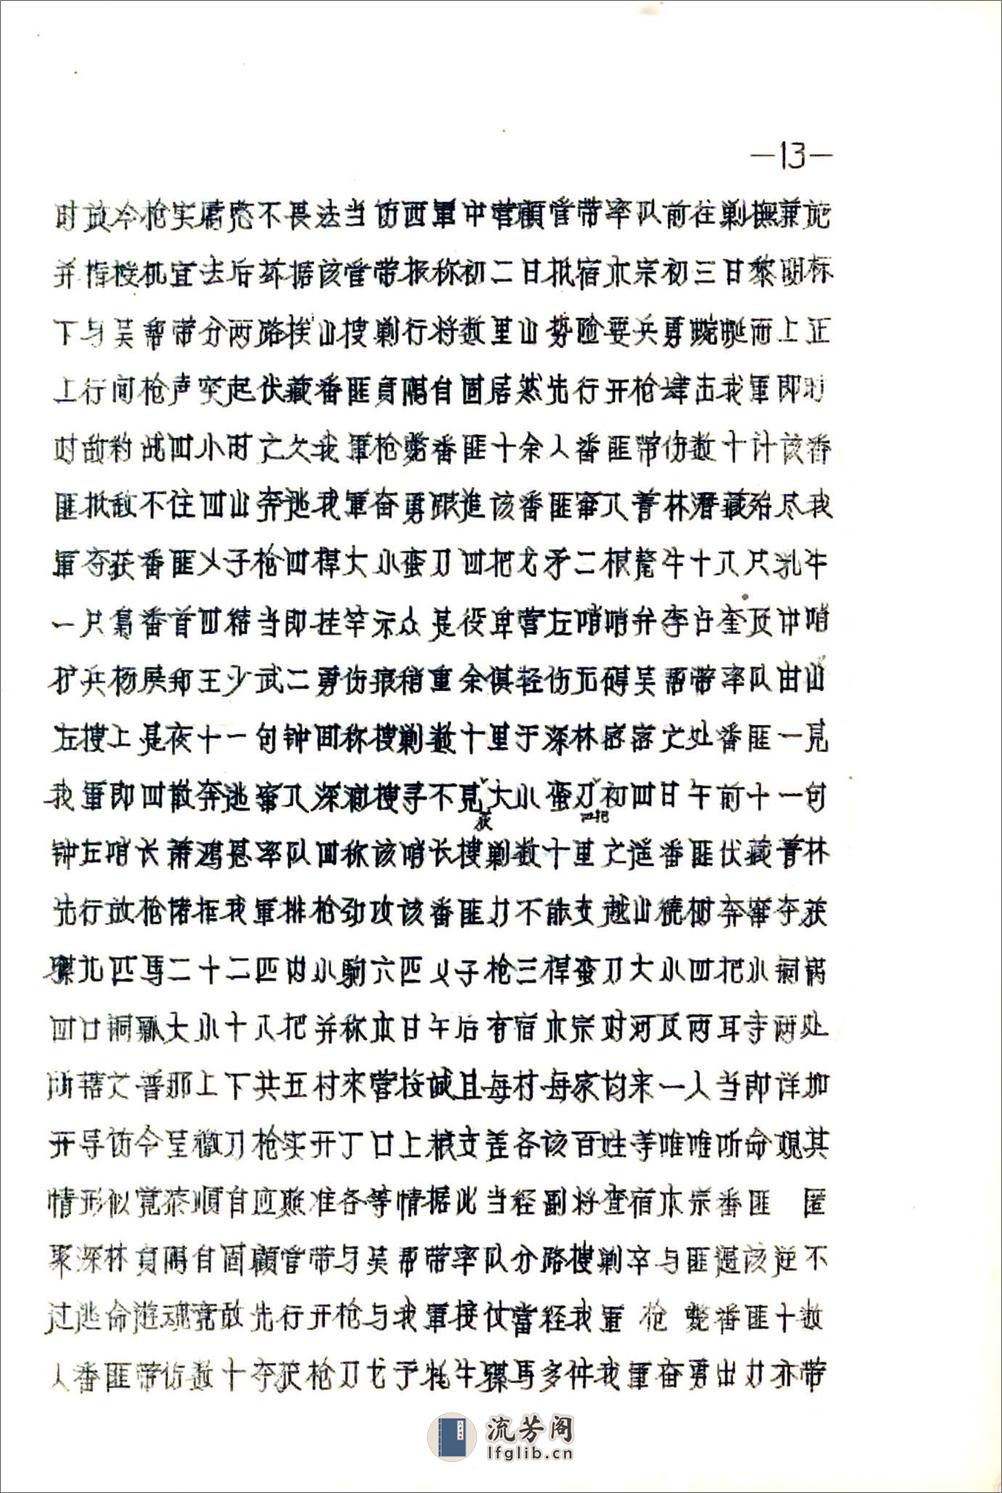 —13—
时放冷枪实属愍不畏法当饬西軍中营顧管带率队前往剿撫兼施
并指授机宜去后兹据该管带报称初二日抵宿木宗初三日黎明标
下与吴帮带分两路挨山搜剿行将数里山势险要兵勇蜿蜒而上正
上行间枪声突起伏藏番匪負隅自固居然先行开枪肆击我軍即时
对敌约战四小时之久我軍枪毙番匪十余人番匪带伤数十计该番
匪抵敌不住四山奔逃我軍奋勇跟追该番匪窜入菁林潜藏殆尽我
軍夺获番匪乂子枪四桿大小蛮刀四把戈矛二根氂牛十八只乳牛
一只馬番首四楛当即挂竿示众是役卑营左哨哨弁李占奎及中哨
护兵杨展郷王少武二勇伤痕稍重余俱轻伤无碍吴帮带率队由山
左搜上是夜十一句钟回称搜剿数十里于深林密箐之处番匪一見
我軍即四散奔逃窜入深涧搜寻不見大小蛮刀初四日午前十一句
获 四把
钟左哨长萧鸿恳率队回称该哨长搜剿数十里之遥番匪伏藏菁林
先行放枪陼拒我軍排枪劲攻该番匪力不能支越山繞树奔窜夺获
骡九匹馬二十二匹内小駒六匹乂子枪三桿蛮刀大小四把小铜锅
四口铜瓢大小十八把并称本日午后有宿木宗对河及两耳寺两处
所辖之普那上下共五村來营投诚且每村每家均来一人当即详加
开导饬令呈缴刀枪实开丁口上粮支差各该百姓等唯唯听命观其
情形似覓恭順自应照准各等情据此当经副将查宿木宗番匪　匿
聚深林負隅自固顧管带与吴帮带率队分路搜剿卒与匪遇该逆不
过逃命遊魂竟敢先行开枪与我軍接仗當经我軍　枪　毙番匪十数
人番匪带伤数十夺获枪刀戈予牦牛骡馬多件我軍奋勇出力亦带
流芳阁
lfglib.cn